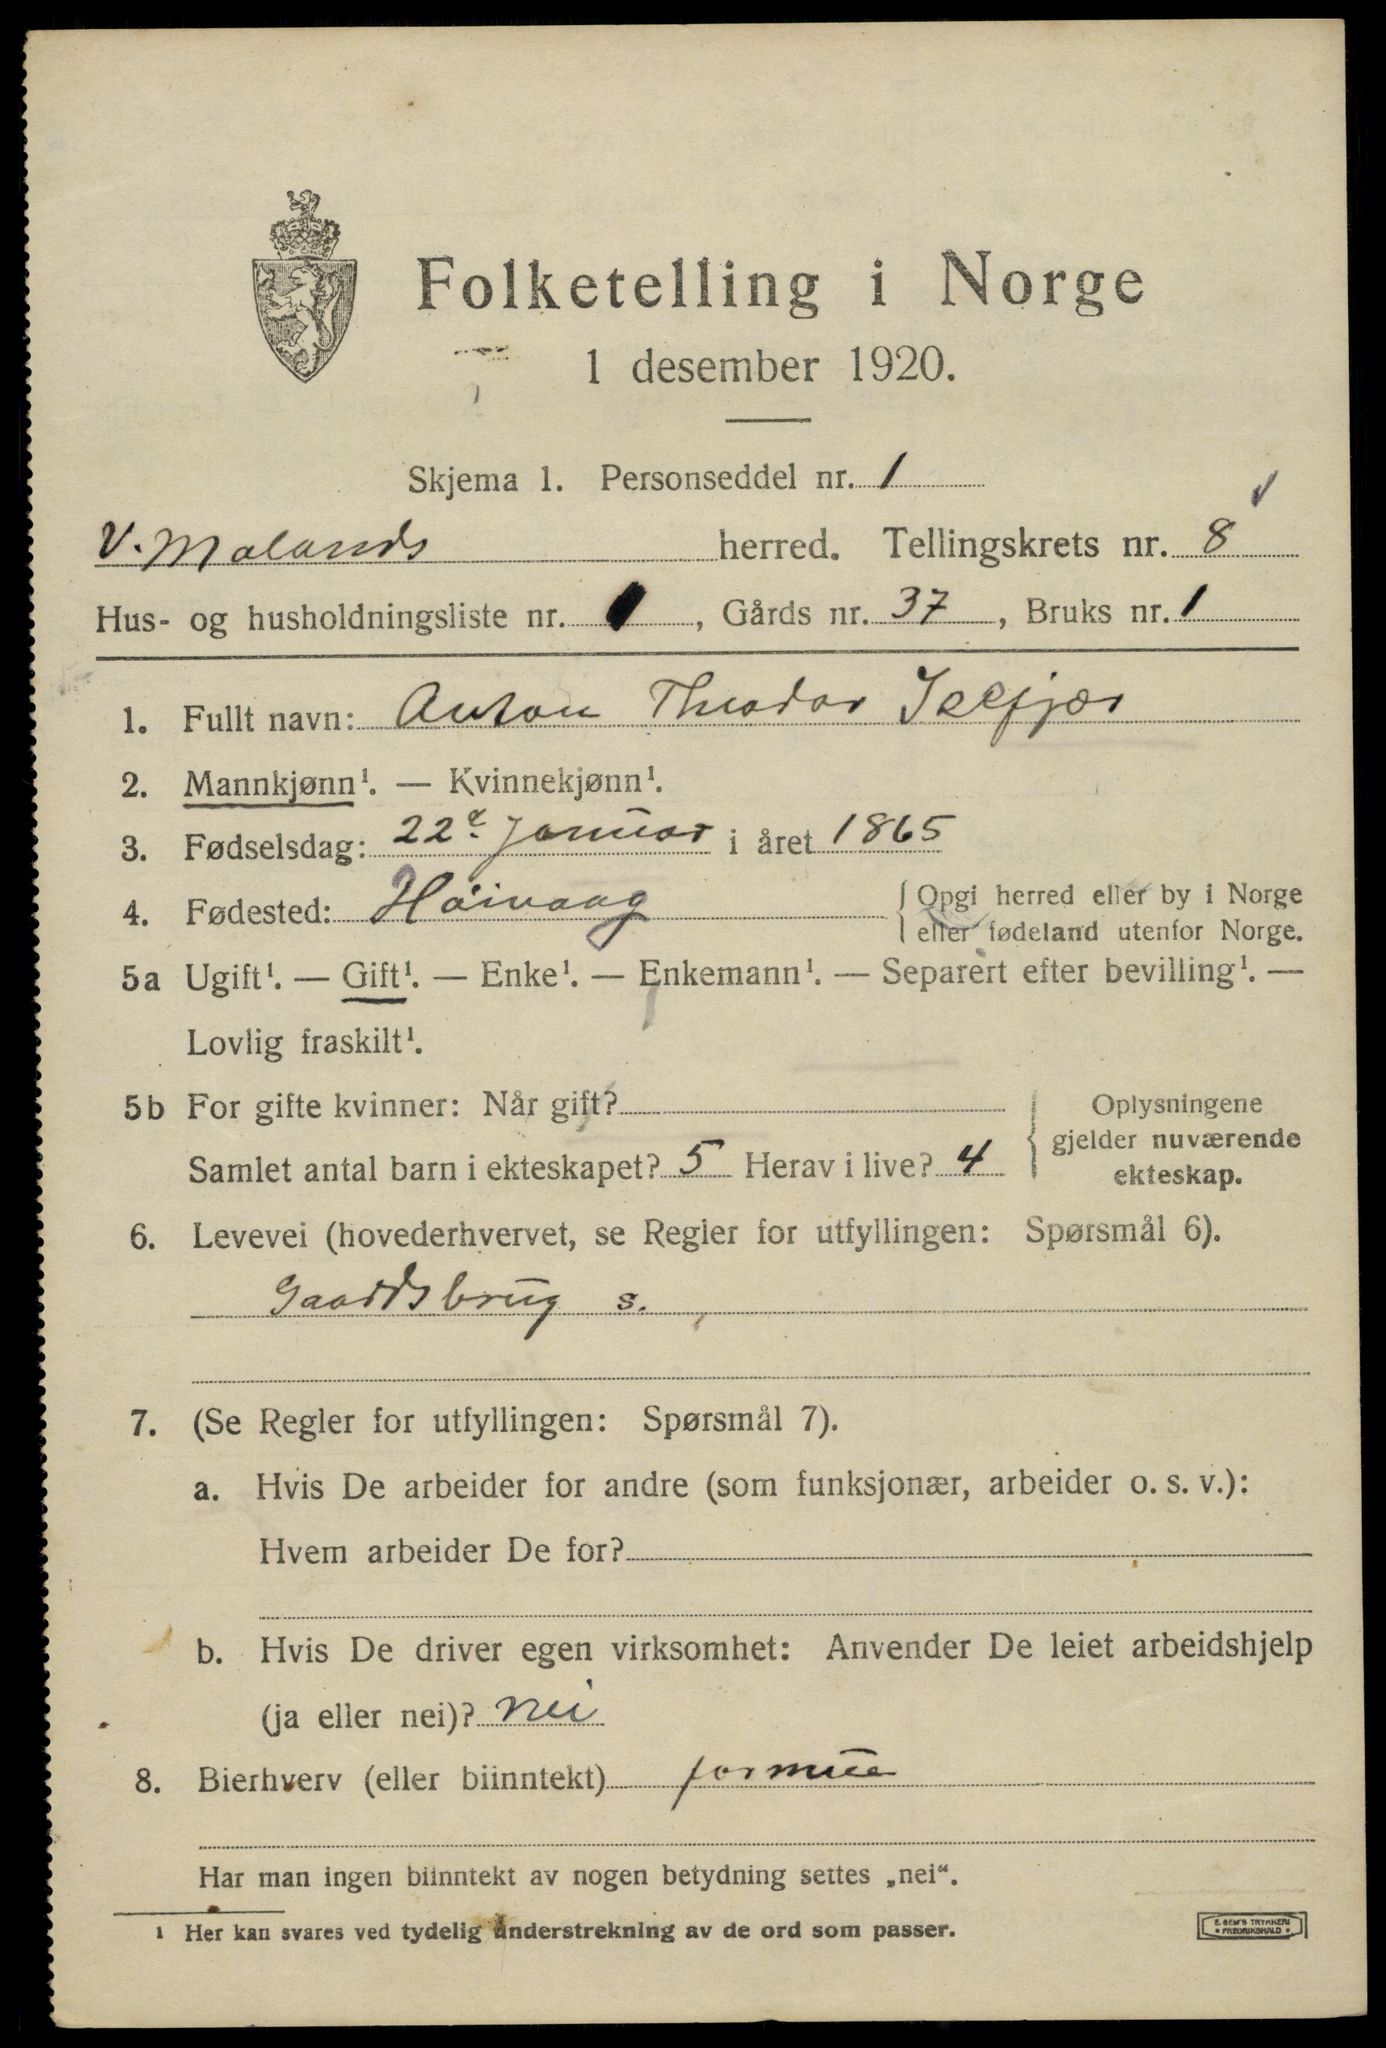 Folketelling i Norge
1 desember 1920.
Skjema 1. Personseddel nr. 1
V. Molands herred. Tellingskrets nr. 8
Hus- og husholdningsliste nr. 1, Gårds nr. 37, Bruks nr. 1
1. Fullt navn: Anton Theodor Isefjær
2. Mannkjønn¹. — Kvinnekjønn¹.
3. Fødselsdag: 22d. Januar i året 1865
4. Fødested: Höivaag { Opgi herred eller by i Norge
eller fødeland utenfor Norge.
5a Ugift¹. — Gift¹. — Enke¹. — Enkemann¹. — Separert efter bevilling¹. —
Lovlig fraskilt¹.
5b For gifte kvinner: Når gift?
Samlet antal barn i ekteskapet? 5 Herav i live? 4
{ Oplysningene
gjelder nuværende
ekteskap.
6. Levevei (hovederhvervet, se Regler for utfyllingen: Spørsmål 6).
Gaardsbrug s.
7. (Se Regler for utfyllingen: Spørsmål 7).
a. Hvis De arbeider for andre (som funksjonær, arbeider o. s. v.):
Hvem arbeider De for?
b. Hvis De driver egen virksomhet: Anvender De leiet arbeidshjelp
(ja eller nei)? nei
8. Bierhverv (eller biinntekt) formue
Har man ingen biinntekt av nogen betydning settes „nei“.
¹ Her kan svares ved tydelig understrekning av de ord som passer.
E. SEM'S TRYKKERI
• FREDRIKSHALD •